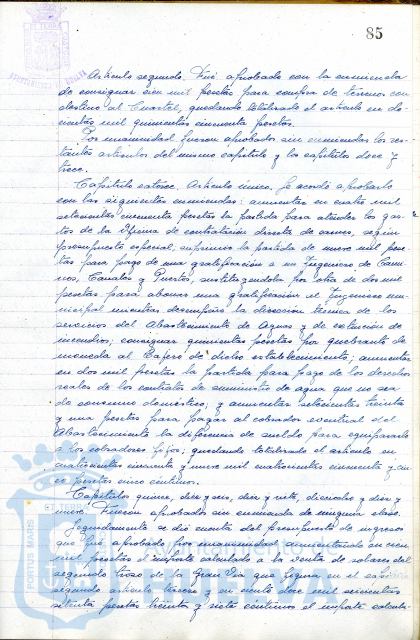 85
Artículo segundo. Fué aprobado con la enmienda
de consignar cien mil pesetas para compra de terrenos con
destino al Cuartel, quedando totalizado el artículo en dos
cientas mil quinientas cincuenta pesetas.
Por unanimidad fueron aprobados sin enmiendas los res-
tantes artículos del mismo capítulo y los capítulos doce y
trece.
Capítulo catorce. Artículo único. Se acordó aprobarlo
con las siguientes enmiendas: aumentar en cuatro mil
setecientas cincuenta pesetas la partida para atender los gas-
tos de la Oficina de contratación directa de carnes, según
presupuesto especial; suprimir la partida de nueve mil pese-
tas para pago de una gratificación a un Ingeniero de Cami-
nos, Canales y Puertos, sustituyéndola por otra de dos mil
pesetas para abonar una gratificación al Ingeniero mu-
nicipal mientras desempeñe la dirección técnica de los
servicios del Abastecimiento de Aguas y de extinción de
incendios; consignar quinientas pesetas por quebranto de
moneda al Cajero de dicho establecimiento; aumentar
en dos mil pesetas la partida para pago de los derechos
reales de los contratos de suministro de agua que no sea
de consumo doméstico; y aumentar setecientas treinta
y una pesetas para pagar al cobrador eventual del
Abastecimiento la diferencia de sueldo para equipararlo
a los cobradores fijos, quedando totalizado el artículo en
cuatrocientas cincuenta y nueve mil cuatrocientas cincuenta y cin-
co pesetas cinco céntimos.
Capítulos quince, diez y seis, diez y siete, dieciocho y diez y
nueve. Fueron aprobados sin enmienda de ninguna clase.
Seguidamente se dió cuenta del presupuesto de ingresos
que fué aprobado por unanimidad, aumentando en cien
mil pesetas el importe calculado a la venta de solares del
segundo trozo de la Gran Vía que figura en el capítulo
segundo artículo tercero y en ciento doce mil seiscientas
setenta pesetas treinta y siete céntimos el importe calcula-
PORTUS MARIS
Ayuntamiento de
HUELVA